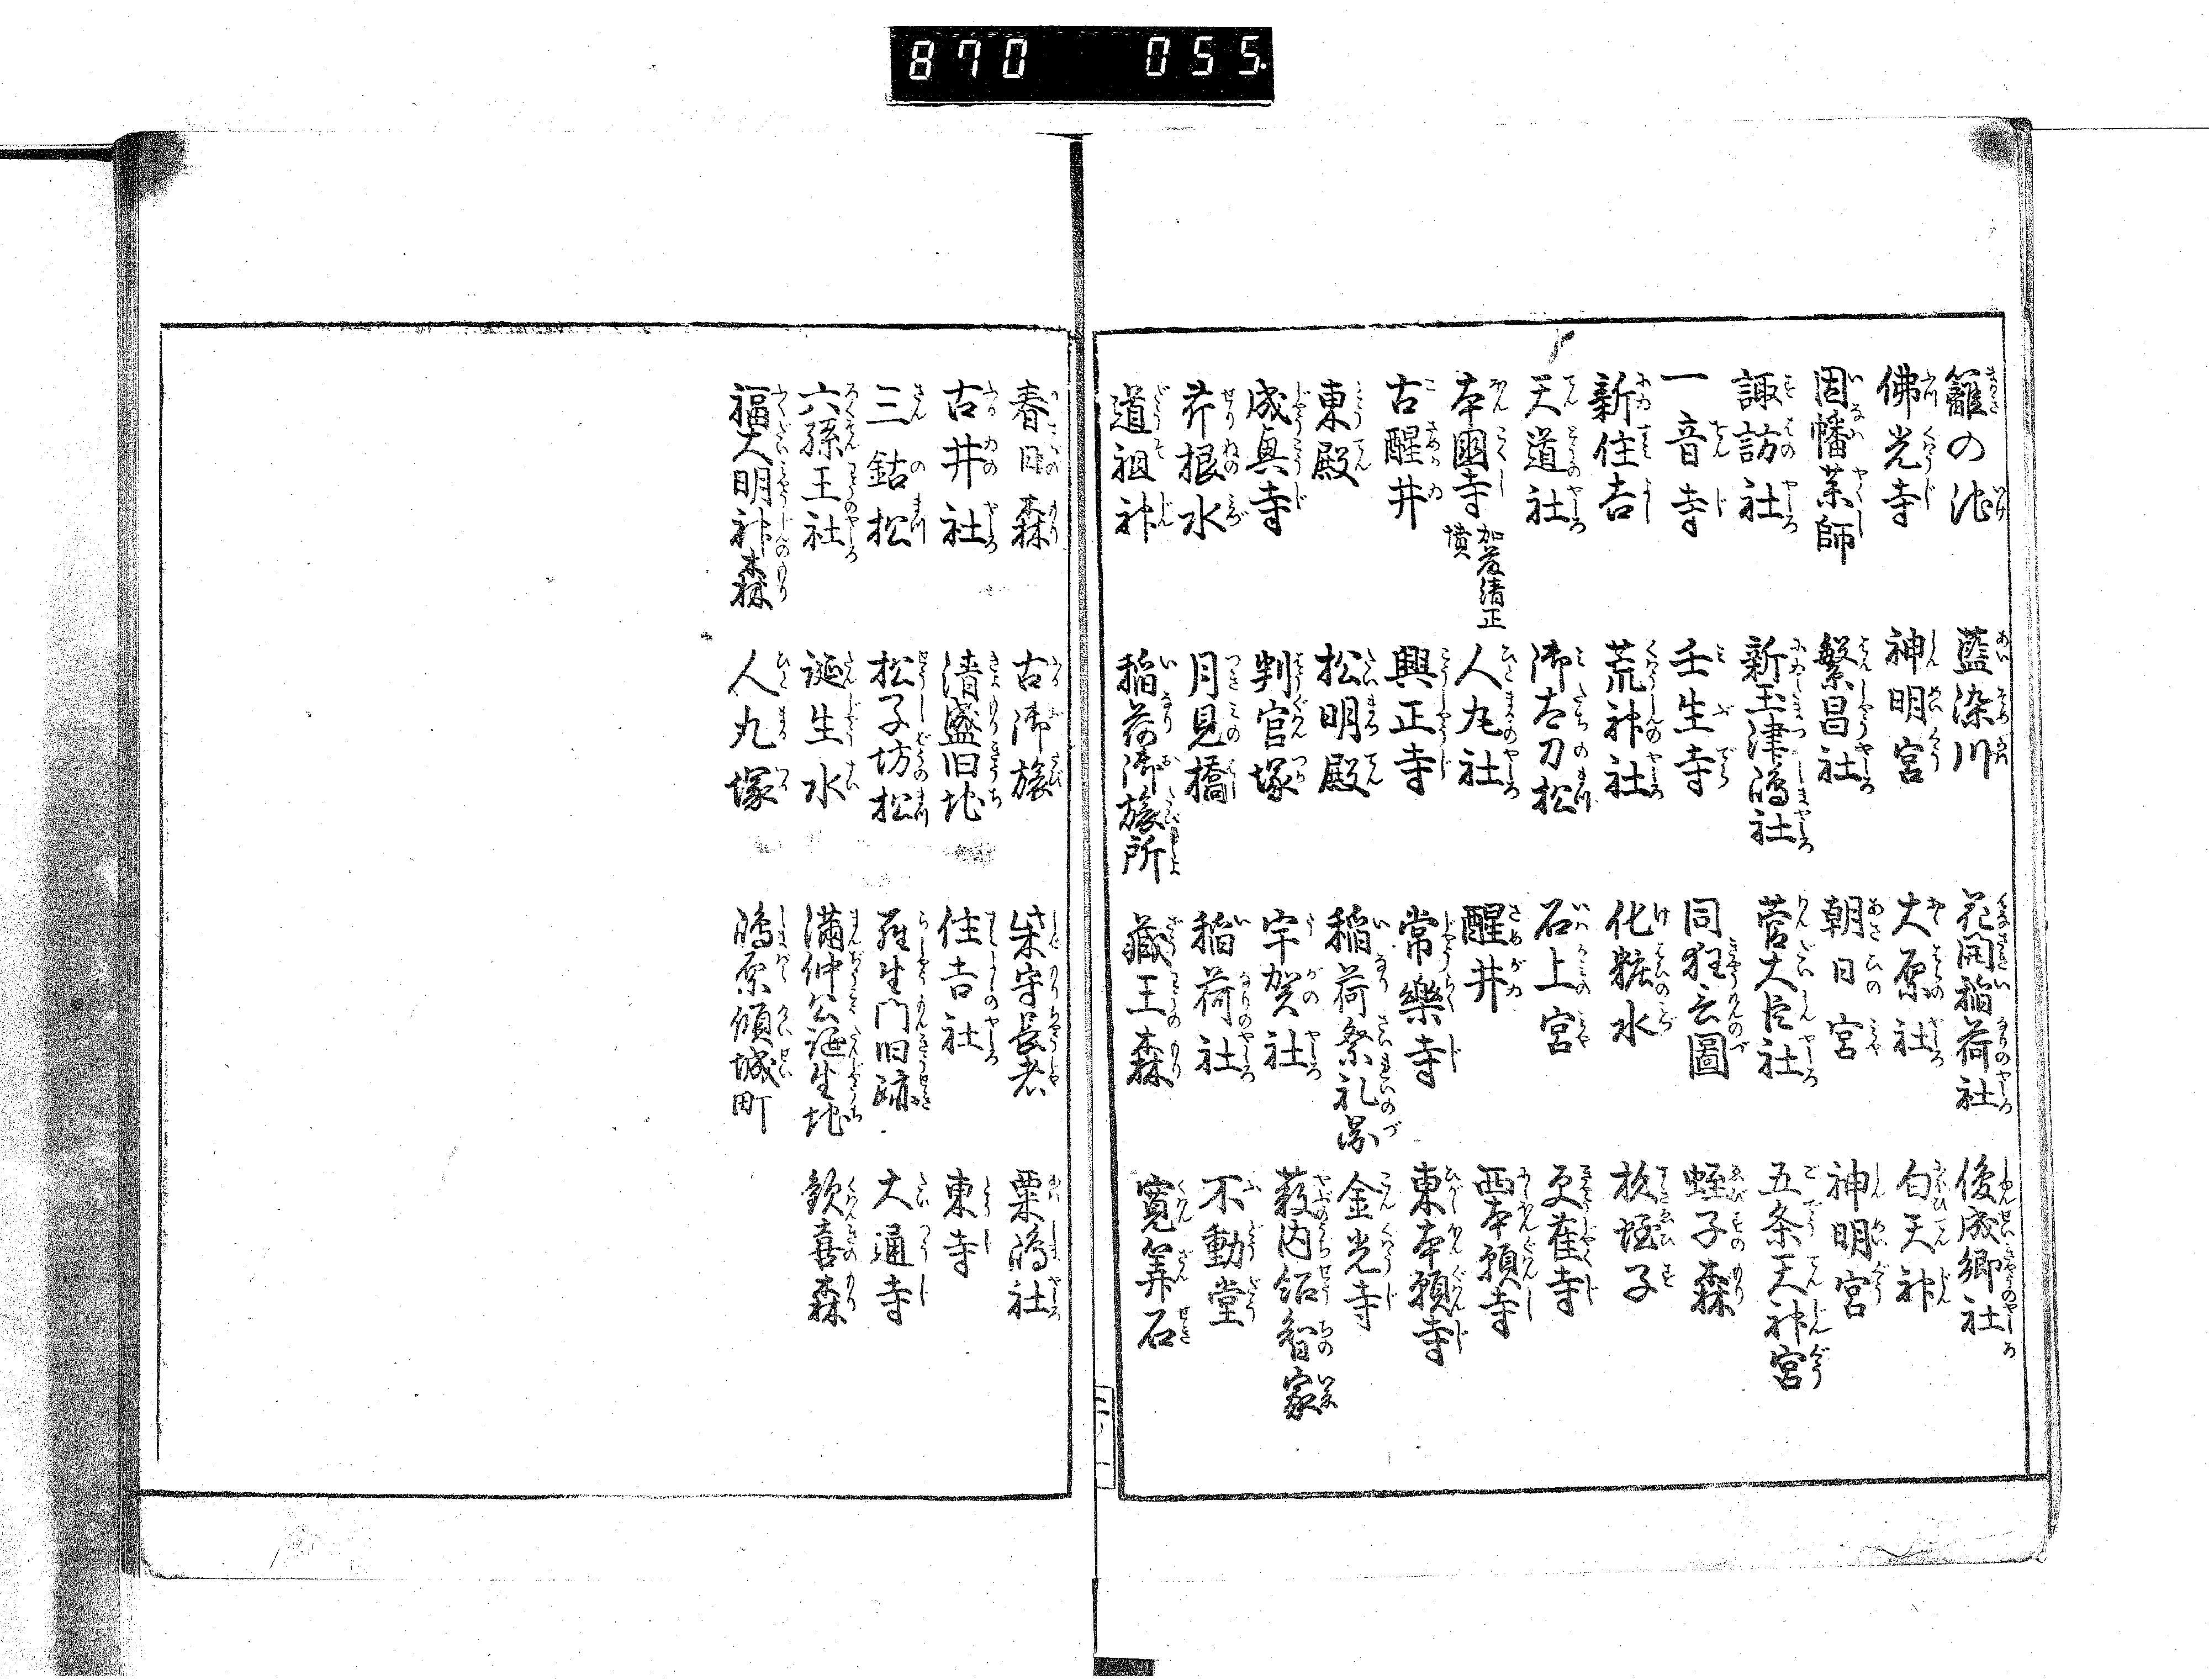 870 055.
籬の池 藍染川 花開稲荷社 俊成卿社
佛光寺 神明宮 大原社 白天神
因幡薬師 繁昌社 朝日宮 神明宮
諏訪社 新玉津嶋社 菅大臣社 五条天神宮
一音寺 壬生寺 同狂言圖 蛭子森
新住吉 荒神社 化粧水
天道社 御太刀松 石上宮 更雀寺
本國寺 加茂清正墳 人丸社 醒井 西本願寺
古醒井 興正寺 常樂寺 東本願寺
東殿 松明殿 稲荷祭礼図 金光寺
成真寺 判官塚 宇賀社 薮内紹智家
芹根水 月見橋 稲荷社 不動堂
道祖神 稲荷御旅所 蔵王森 寛算石
春日森 古御旅 朱守長者 粟嶋社
古井社 清盛旧地 住吉社 東寺
三鈷松 松子坊松 羅生門旧跡 大通寺
六孫王社 誕生水 満仲公誕生地 歓喜森
福大明神森 人丸塚 嶋原傾城町